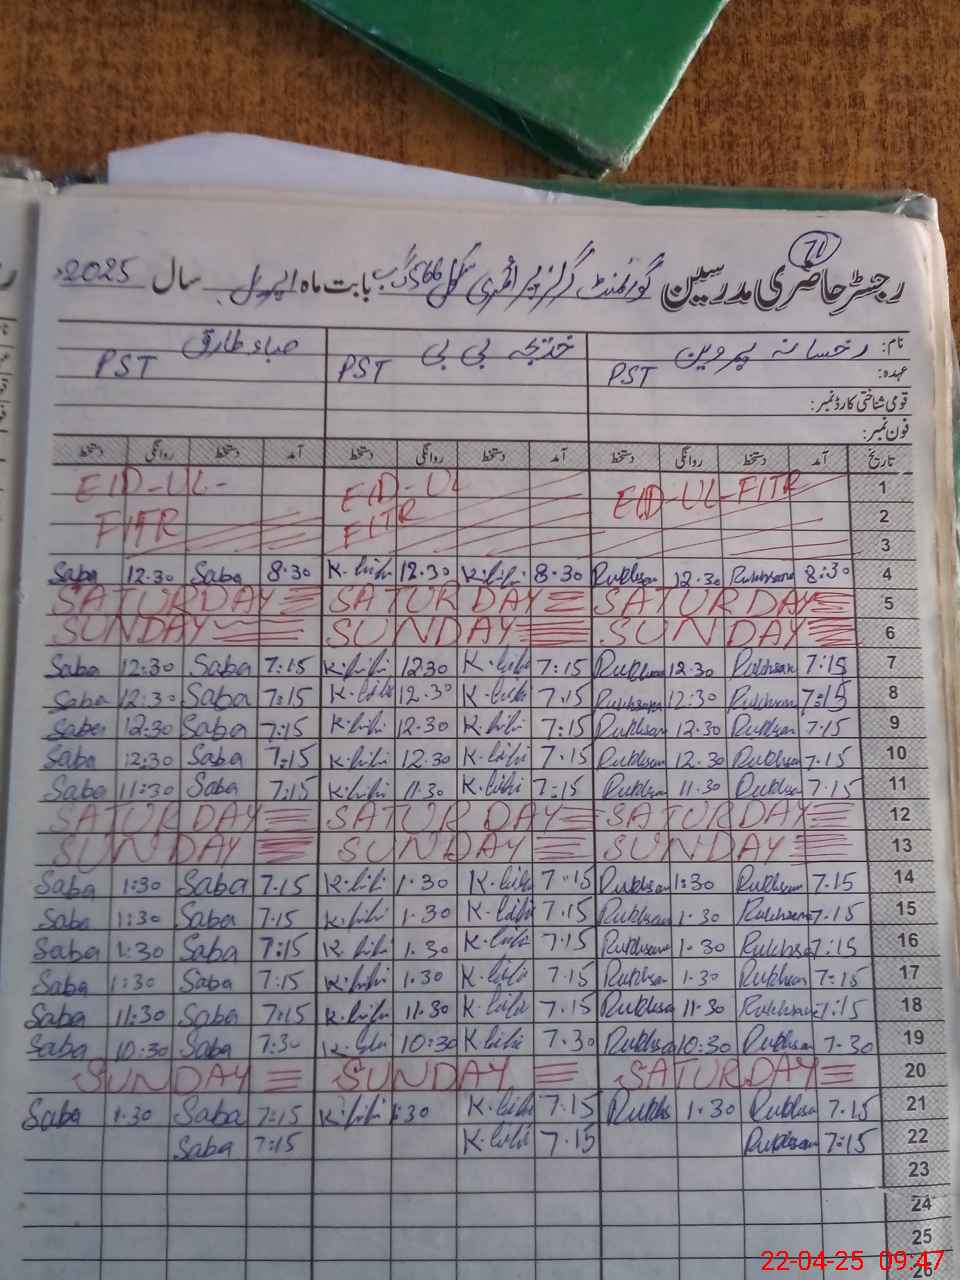 71
رجسٹر حاضری مدرسین گورنمنٹ گرلز پرائمری سکول 566 گ ب بابت ماہ اپریل سال 2025ء
نام: رخسانہ پروین خدیجہ بی بی صباء طارق
عہدہ: PST PST PST
قومی شناختی کارڈ نمبر:
فون نمبر:
تاریخ آمد دستخط روانگی دستخط آمد دستخط روانگی دستخط آمد دستخط روانگی دستخط
EID-UL- EID-UL EID-UL-FITR 1
FITR FITR 2
3
Saba 12.30 Saba 8.30 K.bibi 12.30 K.bibi 8.30 Rukhsan 12.30 Rukhsana 8:30 4
SATURDAY SATURDAY SATURDAY 5
SUNDAY SUNDAY SUNDAY 6
Saba 12:30 Saba 7:15 K.bibi 1230 K.bibi 7:15 Rukhsan 12.30 Rukhsan 7:15 7
Saba 12:30 Saba 7:15 K.bibi 12.30 K.bibi 7.15 Rukhsana 12:30 Rukhsan 7:15 8
Saba 12:30 Saba 7:15 K.bibi 12.30 K.bibi 7:15 Rukhsan 12.30 Rukhsan 7.15 9
Saba 12:30 Saba 7:15 K.bibi 12.30 K.bibi 7.15 Rukhsan 12.30 Rukhsan 7.15 10
Saba 11:30 Saba 7:15 K.bibi 11.30 K.bibi 7:15 Rukhsan 11.30 Rukhsan 7.15 11
SATURDAY SATURDAY SATURDAY 12
SUNDAY SUNDAY SUNDAY 13
Saba 1:30 Saba 7.15 K.bibi 1.30 K.bibi 7.15 Rukhsan 1:30 Rukhsan 7.15 14
Saba 1:30 Saba 7.15 K.bibi 1.30 K.bibi 7.15 Rukhsan 1.30 Rukhsana 7.15 15
Saba 1:30 Saba 7:15 K.bibi 1.30 K.bibi 7.15 Rukhsana 1.30 Rukhsa 7:15 16
Saba 1:30 Saba 7:15 K.bibi 1.30 K.bibi 7.15 Rukhsan 1.30 Rukhsan 7:15 17
Saba 11:30 Saba 7:15 K.bibi 11.30 K.bibi 7.15 Rukhsa 11.30 Rukhsana 7:15 18
Saba 10:30 Saba 7:30 K.bibi 10:30 K.bibi 7.30 Rukhsa 10:30 Rukhsan 7.30 19
SUNDAY SUNDAY SATURDAY 20
Saba 1.30 Saba 7:15 K.bibi 1:30 K.bibi 7.15 Rukhs 1.30 Rukhsa 7.15 21
Saba 7:15 K.bibi 7.15 Rukhsan 7:15 22
23
24
25
26
22-04-25 09:47